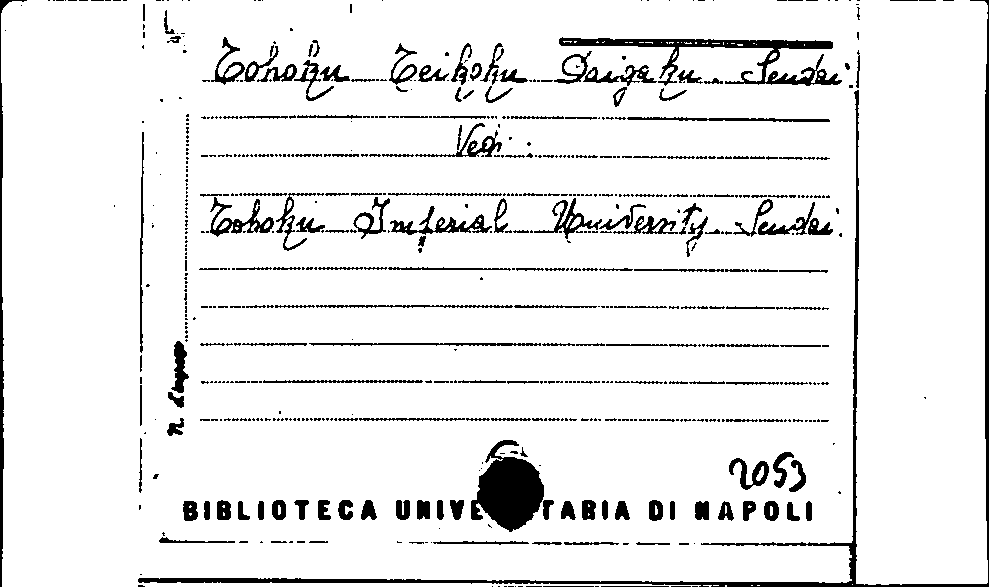 Tohoku Teikoku Daigaku. Sendai.
Vedi:
Tohoku Imperial University. Sendai.
N. d'ingresso
2053
BIBLIOTECA UNIVE TARIA DI NAPOLI